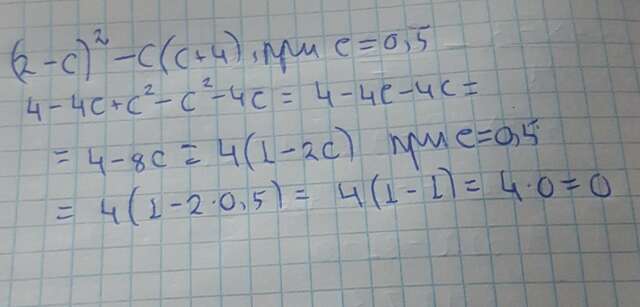 (2-c)² - c(c+4), при c=0,5
4-4c+c²-c²-4c = 4-4c-4c =
= 4-8c = 4(1-2c) при c=0,5
= 4(1-2·0,5) = 4(1-1) = 4·0=0